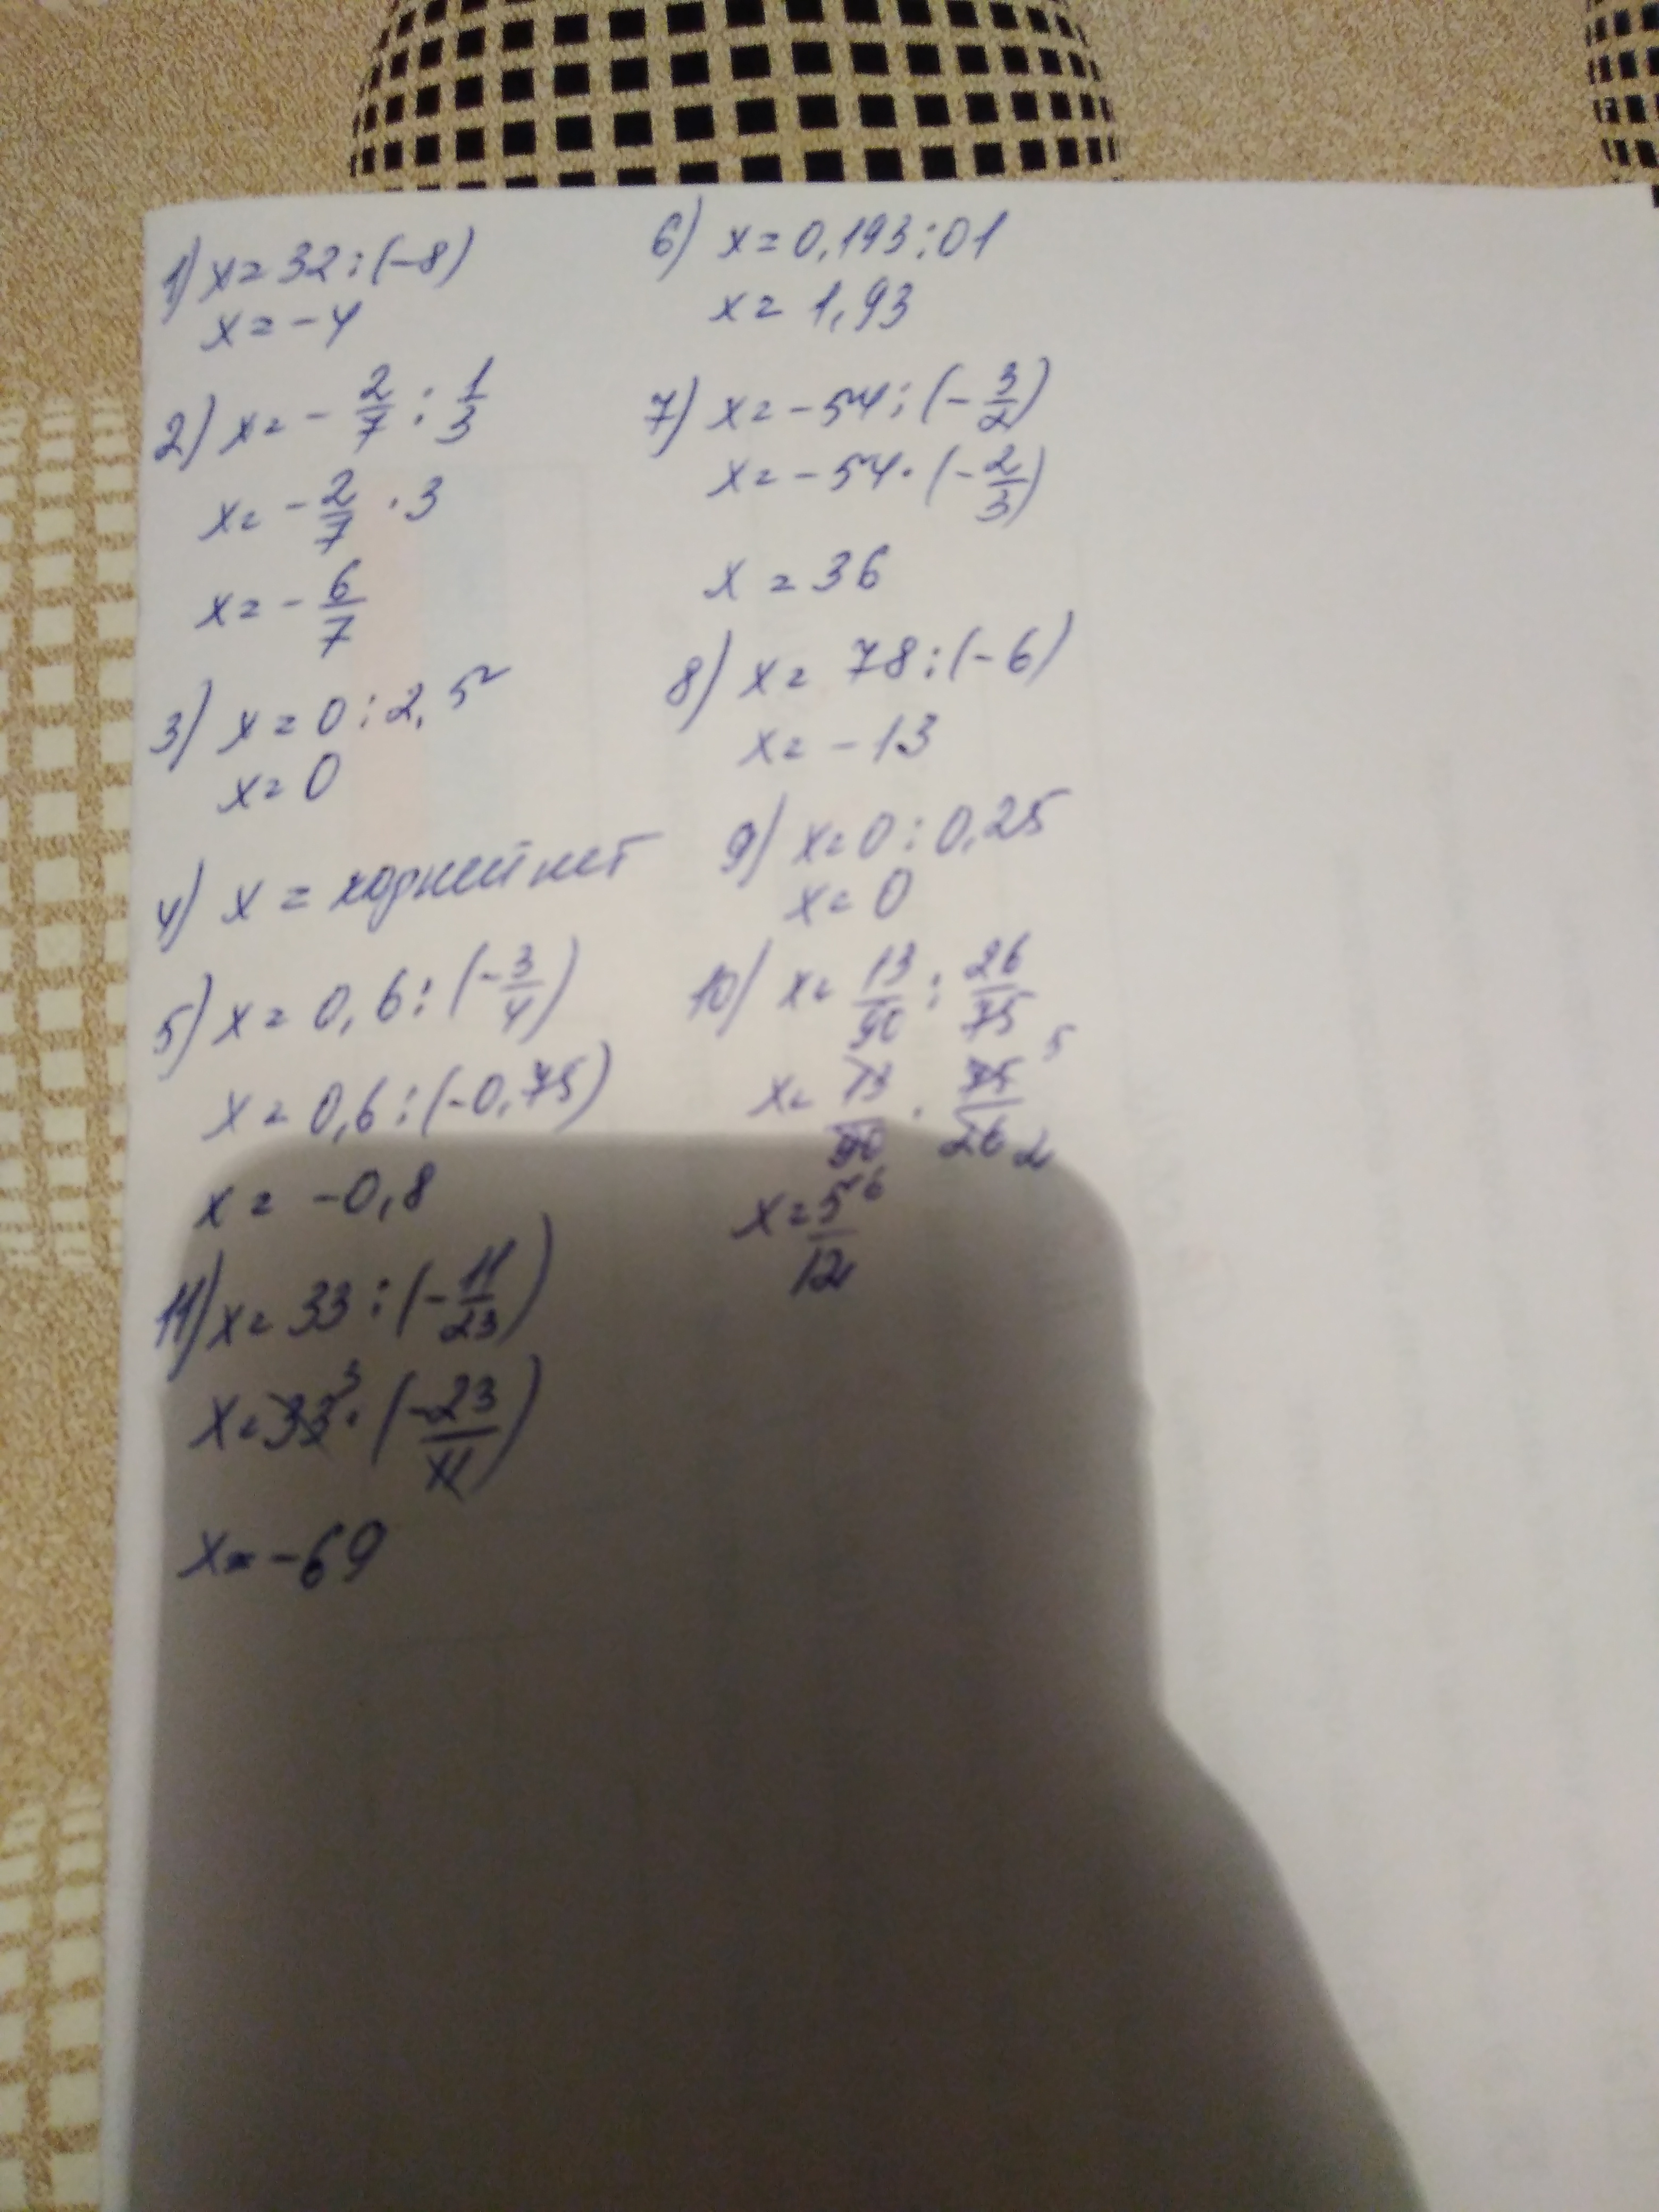 1) x = 32 : (-8)
x = -4
2) x = - 2/7 : 1/3
x = - 2/7 · 3
x = - 6/7
3) x = 0 : 2,5
x = 0
4) x = корней нет
5) x = 0,6 : (- 3/4)
x = 0,6 : (-0,75)
x = -0,8
11) x = 33 : (- 11/23)
x = 33 3 · (- 23/11)
x = -69
6) x = 0,193 : 01
x = 1,93
7) x = -54 : (- 3/2)
x = -54 · (- 2/3)
x = 36
8) x = 78 : (-6)
x = -13
9) x = 0 : 0,25
x = 0
10) x = 13/90 : 26/75
x = 13/90 6 · 75 5/26 2
x = 5/12